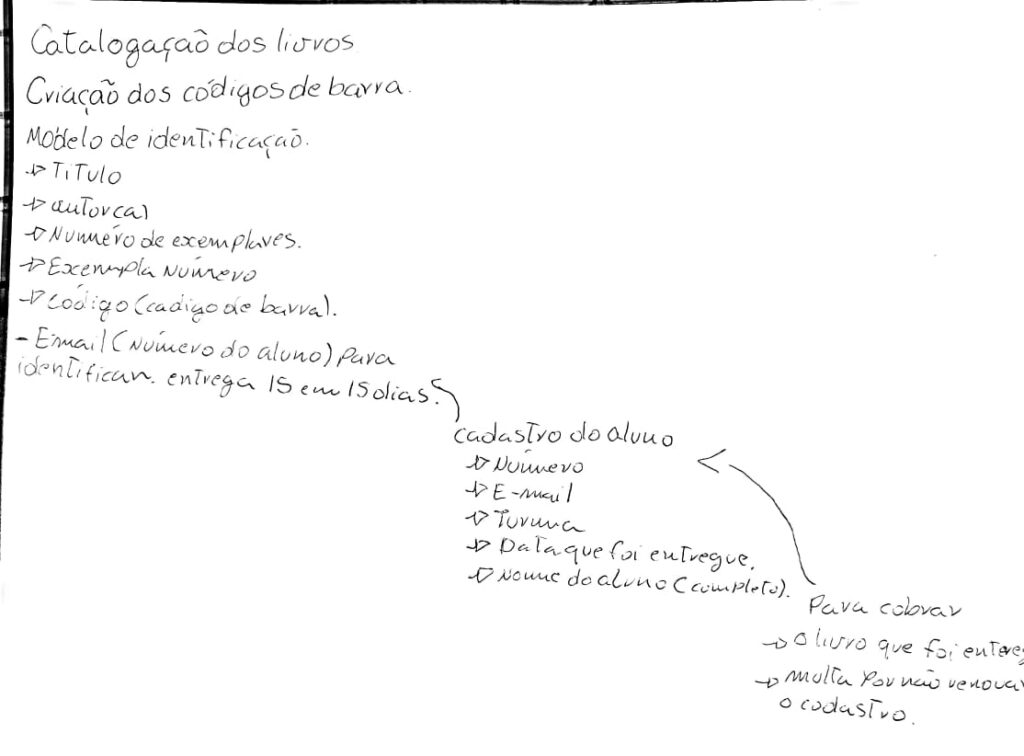 Catalogação dos livros
Criação dos códigos de barra.
Modelo de identificação.
→ Titulo
→ autor(a)
→ Número de exemplares.
→ Exempla Número
→ Código (codigo de barra).
- E-mail (Número do aluno) para
identificar. entrega 15 em 15 dias.
cadastro do aluno
→ Número
→ E-mail
→ Turma
→ Data que foi entregue.
→ Nome do aluno (completo).
Para cobrar
→ O livro que foi entreg
→ multa por não renovar
o cadastro.